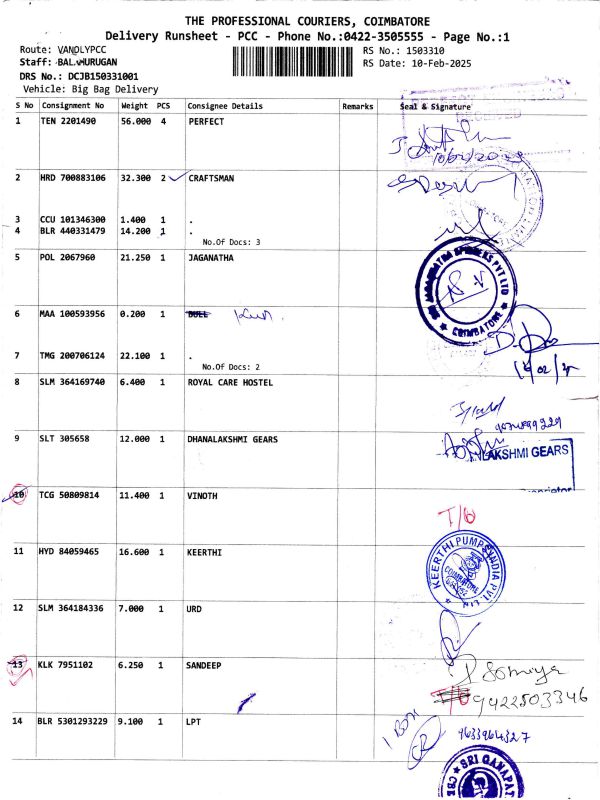 THE PROFESSIONAL COURIERS, COIMBATORE
Delivery Runsheet - PCC - Phone No.:0422-3505555 - Page No.:1
Route: VANDLYPCC RS No.: 1503310
Staff: BALAMURUGAN RS Date: 10-Feb-2025
DRS No.: DCJB150331001
Vehicle: Big Bag Delivery
S No Consignment No Weight PCS Consignee Details Remarks Seal & Signature
RECEIVED
1 TEN 2201490 56.000 4 PERFECT
10/02/2025
2 HRD 700883106 32.300 2 CRAFTSMAN
3 CCU 101346300 1.400 1 .
4 BLR 440331479 14.200 1 .
No.Of Docs: 3
5 POL 2067960 21.250 1 JAGANATHA
SRI JAGANNATHA SPINNERS PVT LTD
COIMBATORE
6 MAA 100593956 0.200 1 BULL
7 TMG 200706124 22.100 1 .
No.Of Docs: 2
8 SLM 364169740 6.400 1 ROYAL CARE HOSTEL
9 SLT 305658 12.000 1 DHANALAKSHMI GEARS
LAKSHMI GEARS
10 TCG 50809814 11.400 1 VINOTH
T/O
11 HYD 84059465 16.600 1 KEERTHI
KEERTHI PUMPS INDIA PVT. LTD
COIMBATORE
12 SLM 364184336 7.000 1 URD
13 KLK 7951102 6.250 1 SANDEEP
P Somiya
T/O 9422503346
14 BLR 5301293229 9.100 1 LPT
1 BOX
9633964327
SRI GANAPAT
CBE